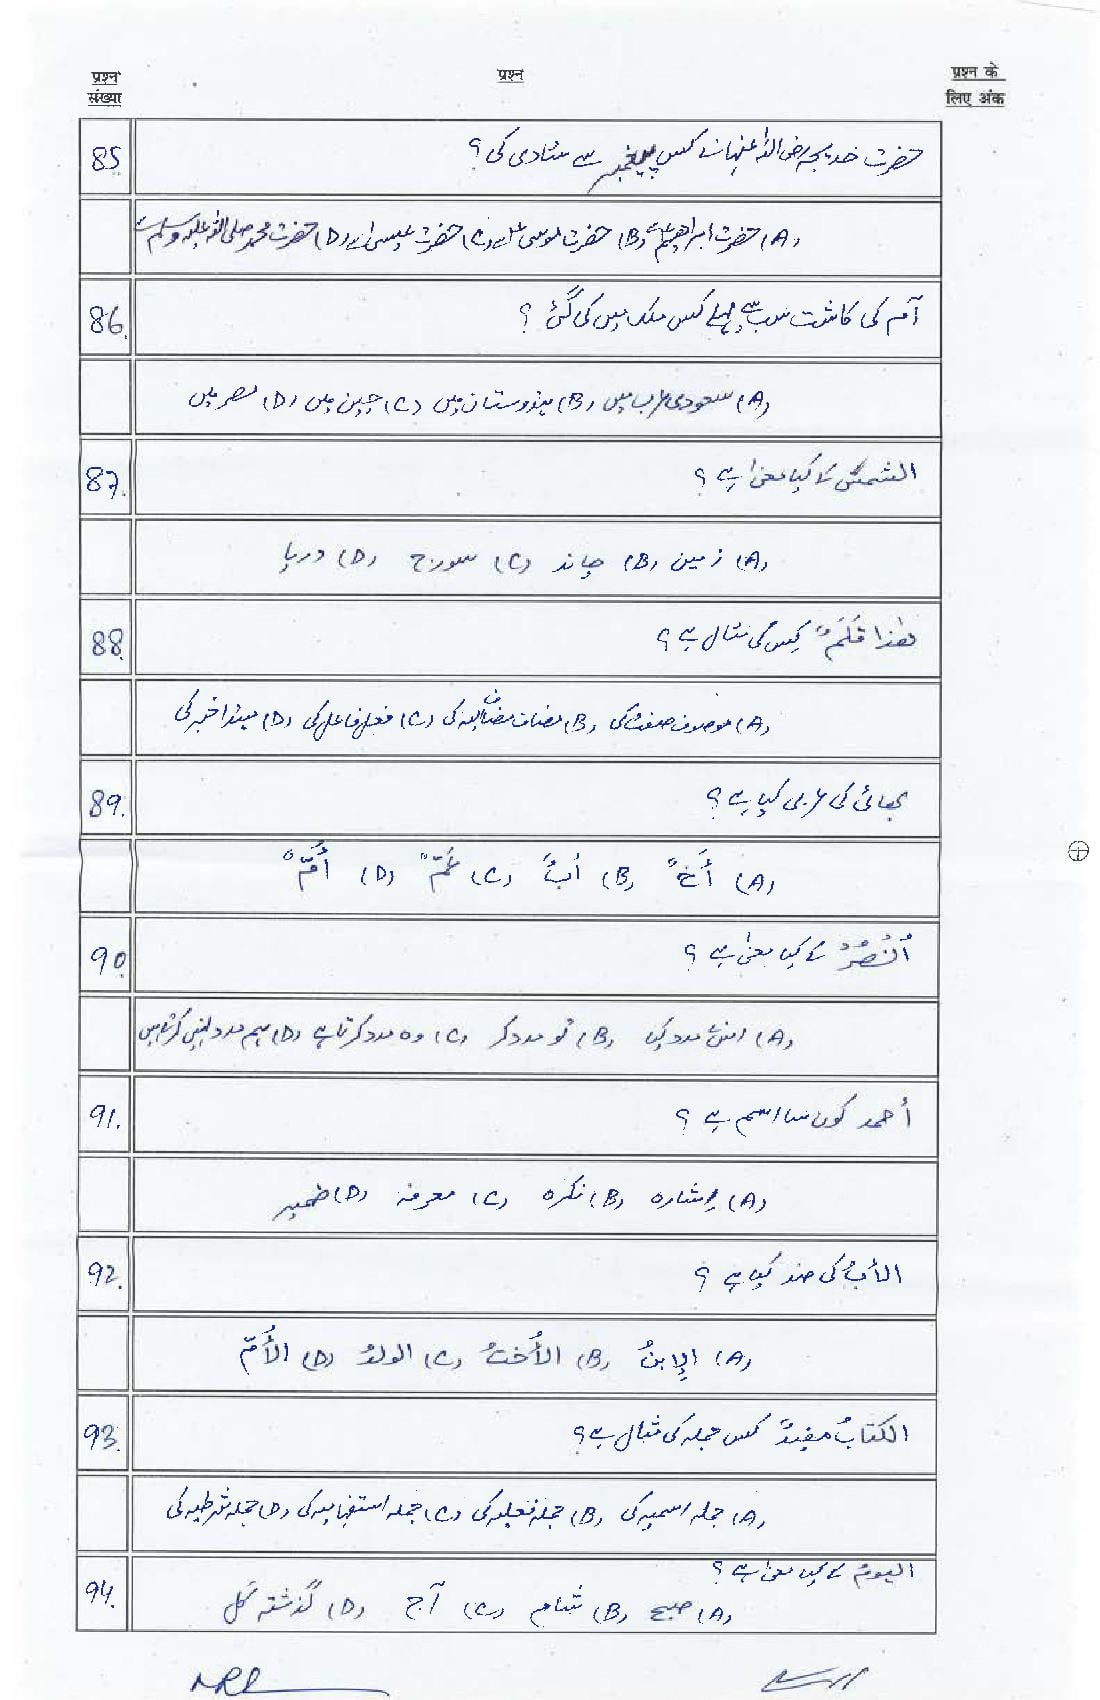 प्रश्न संख्या
प्रश्न
प्रश्न के लिए अंक
85. حضرت خدیجہ رضی اللہ عنہا نے کس پیغمبر سے شادی کی؟
(A) حضرت ابراہیمؑ (B) حضرت موسیٰ (C) حضرت عیسیٰ (D) حضرت محمد صلی اللہ علیہ وسلم سے
86. آم کی کاشت سب سے پہلے کس ملک میں کی گئی؟
(A) سعودی عرب میں (B) ہندوستان میں (C) چین میں (D) مصر میں
87. الشمسُ کا کیا معنیٰ ہے؟
(A) زمین (B) چاند (C) سورج (D) دریا
88. ھٰذا قَلَمٌ کِس کی مثال ہے؟
(A) موصوف صفت کی (B) مضاف مضاف الیہ کی (C) فعل فاعل کی (D) مبتدا خبر کی
89. بھائی کی عربی کیا ہے؟
(A) أَخٌ (B) أبٌ (C) عَمٌّ (D) أُمٌّ
90. اُنْصُرْ کے کیا معنیٰ ہے؟
(A) اسنے مدد کی (B) تو مدد کر (C) وہ مدد کرتا ہے (D) ہم مدد نہیں کرتے ہیں
91. أحمد کون سا اسم ہے؟
(A) اِشارہ (B) نکرہ (C) معرفہ (D) ضمیر
92. الأبُ کی ضد کیا ہے؟
(A) الإبنُ (B) الأُختُ (C) الولدُ (D) الأُمّ
93. الکتابُ مفیدٌ کس جملہ کی مثال ہے؟
(A) جملہ اسمیہ کی (B) جملہ فعلیہ کی (C) جملہ استفہامیہ کی (D) جملہ شرطیہ کی
94. الیومُ کے کیا معنیٰ ہے؟
(A) صبح (B) شام (C) آج (D) گذشتہ کل